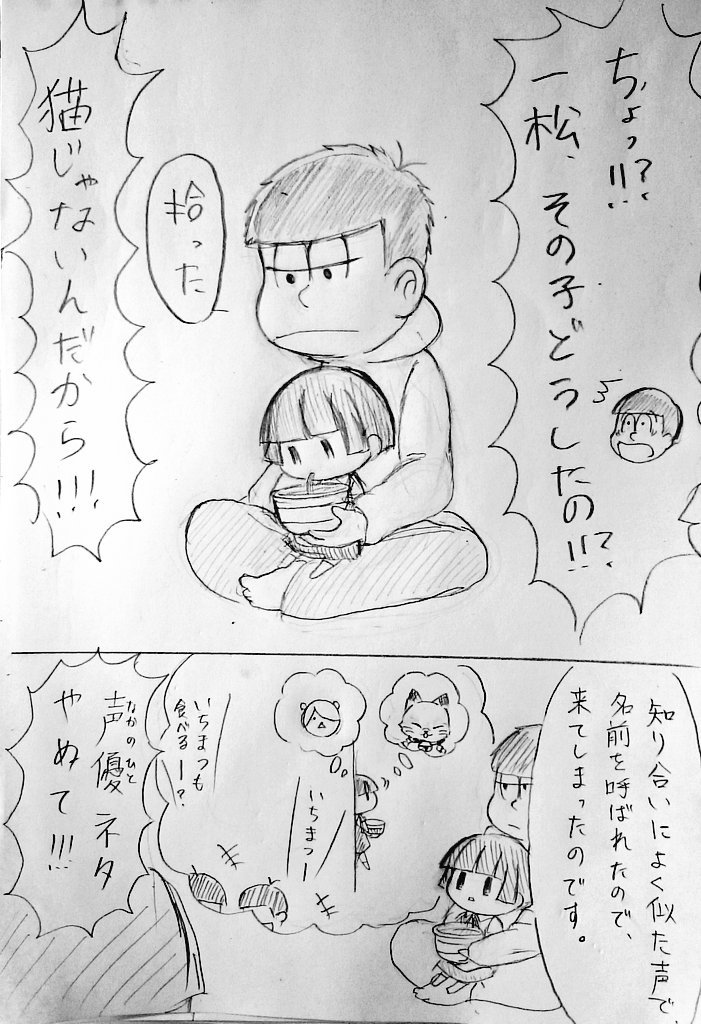 ちょっ!!?
一松、その子どうしたの!!?
拾った
猫じゃないんだから!!!
知り合いによく似た声で、
名前を呼ばれたので、
来てしまったのです。
いちまつー
いちまつも
食べるー?
声優ネタ
なかのひと
やめて!!!